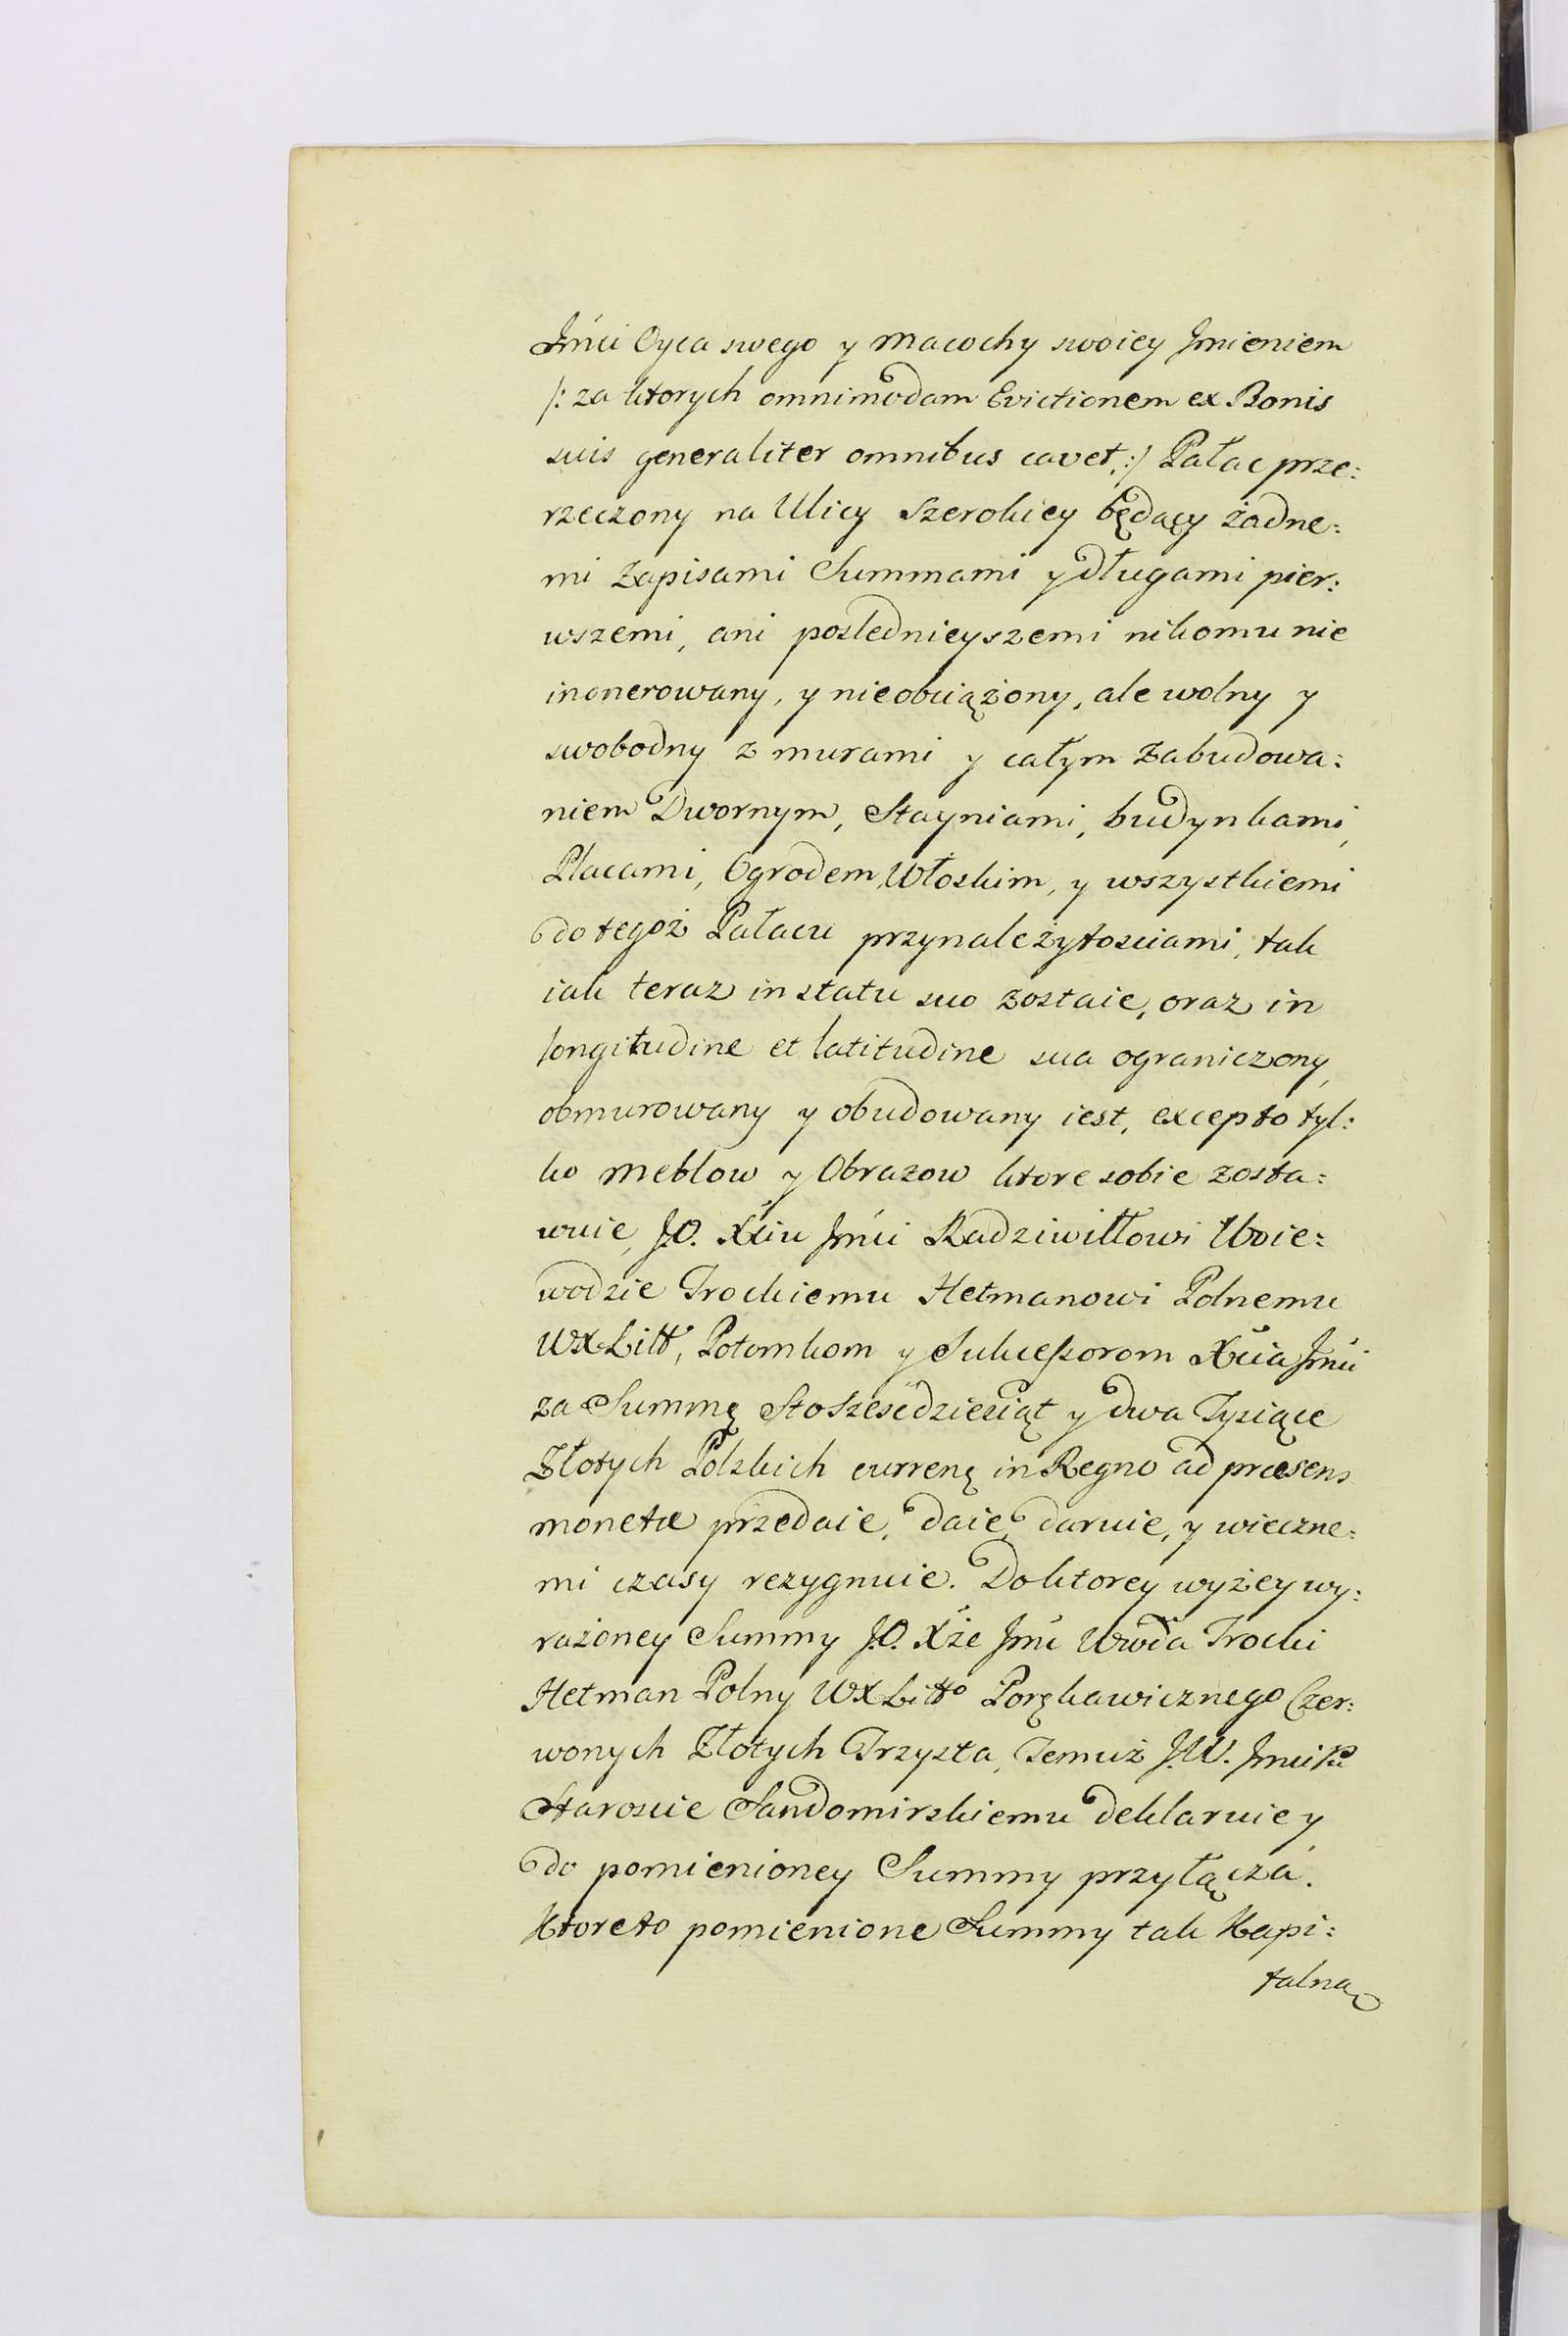 Jmći Oyca swego y Macochy swoiey Jmieniem
/: za ktorych omnimodam Evictionem ex Bonis
suis generaliter omnibus cavet, :/ Pałac prze:
rzeczony na Ulicy Szerokiey będący żadne:
mi Zapisami Summami y długami pier:
wszemi, ani poslednieyszemi nikomu nie
inonerowany, y nieobciążony, ale wolny y
swobodny z murami y całym Zabudowa:
niem Dwornym, Stayniami, budynkami,
Placami, Ogrodem Włoskim, y wszystkiemi
do tegoż Pałacu przynależytosciami, tak
iak teraz in statu suo zostaie, oraz in
longitudine et latitudine sua ograniczony,
obmurowany y obudowany iest, excepto tyl:
ko Meblow y Obrazow ktore sobie zosta:
wuie, J.O. Xciu Jmći Radziwiłłowi Woie:
wodzie Trockiemu Hetmanowi Polnemu
WXLitt, Potomkom y Sukcessorom Xcia Jmći
za Summę Sto Szescdziesiąt y dwa Tysiące
Złotych Polskich currenę in Regno ad præsens
monetæ przedaie, daie, daruie, y wieczne:
mi czasy rezygnuie. Do ktorey wyżey wy:
rażoney Summy J.O. Xże Jmć Wwoda Trocki
Hetman Polny WXLitto Porękawicznego Czer:
wonych Złotych Trzysta, Temuż J.W. Jmci Pu
Staroscie Sandomirskiemu deklaruie y
do pomienioney Summy przyłącza.
Ktoreto pomienione Summy tak Kapi:
talną